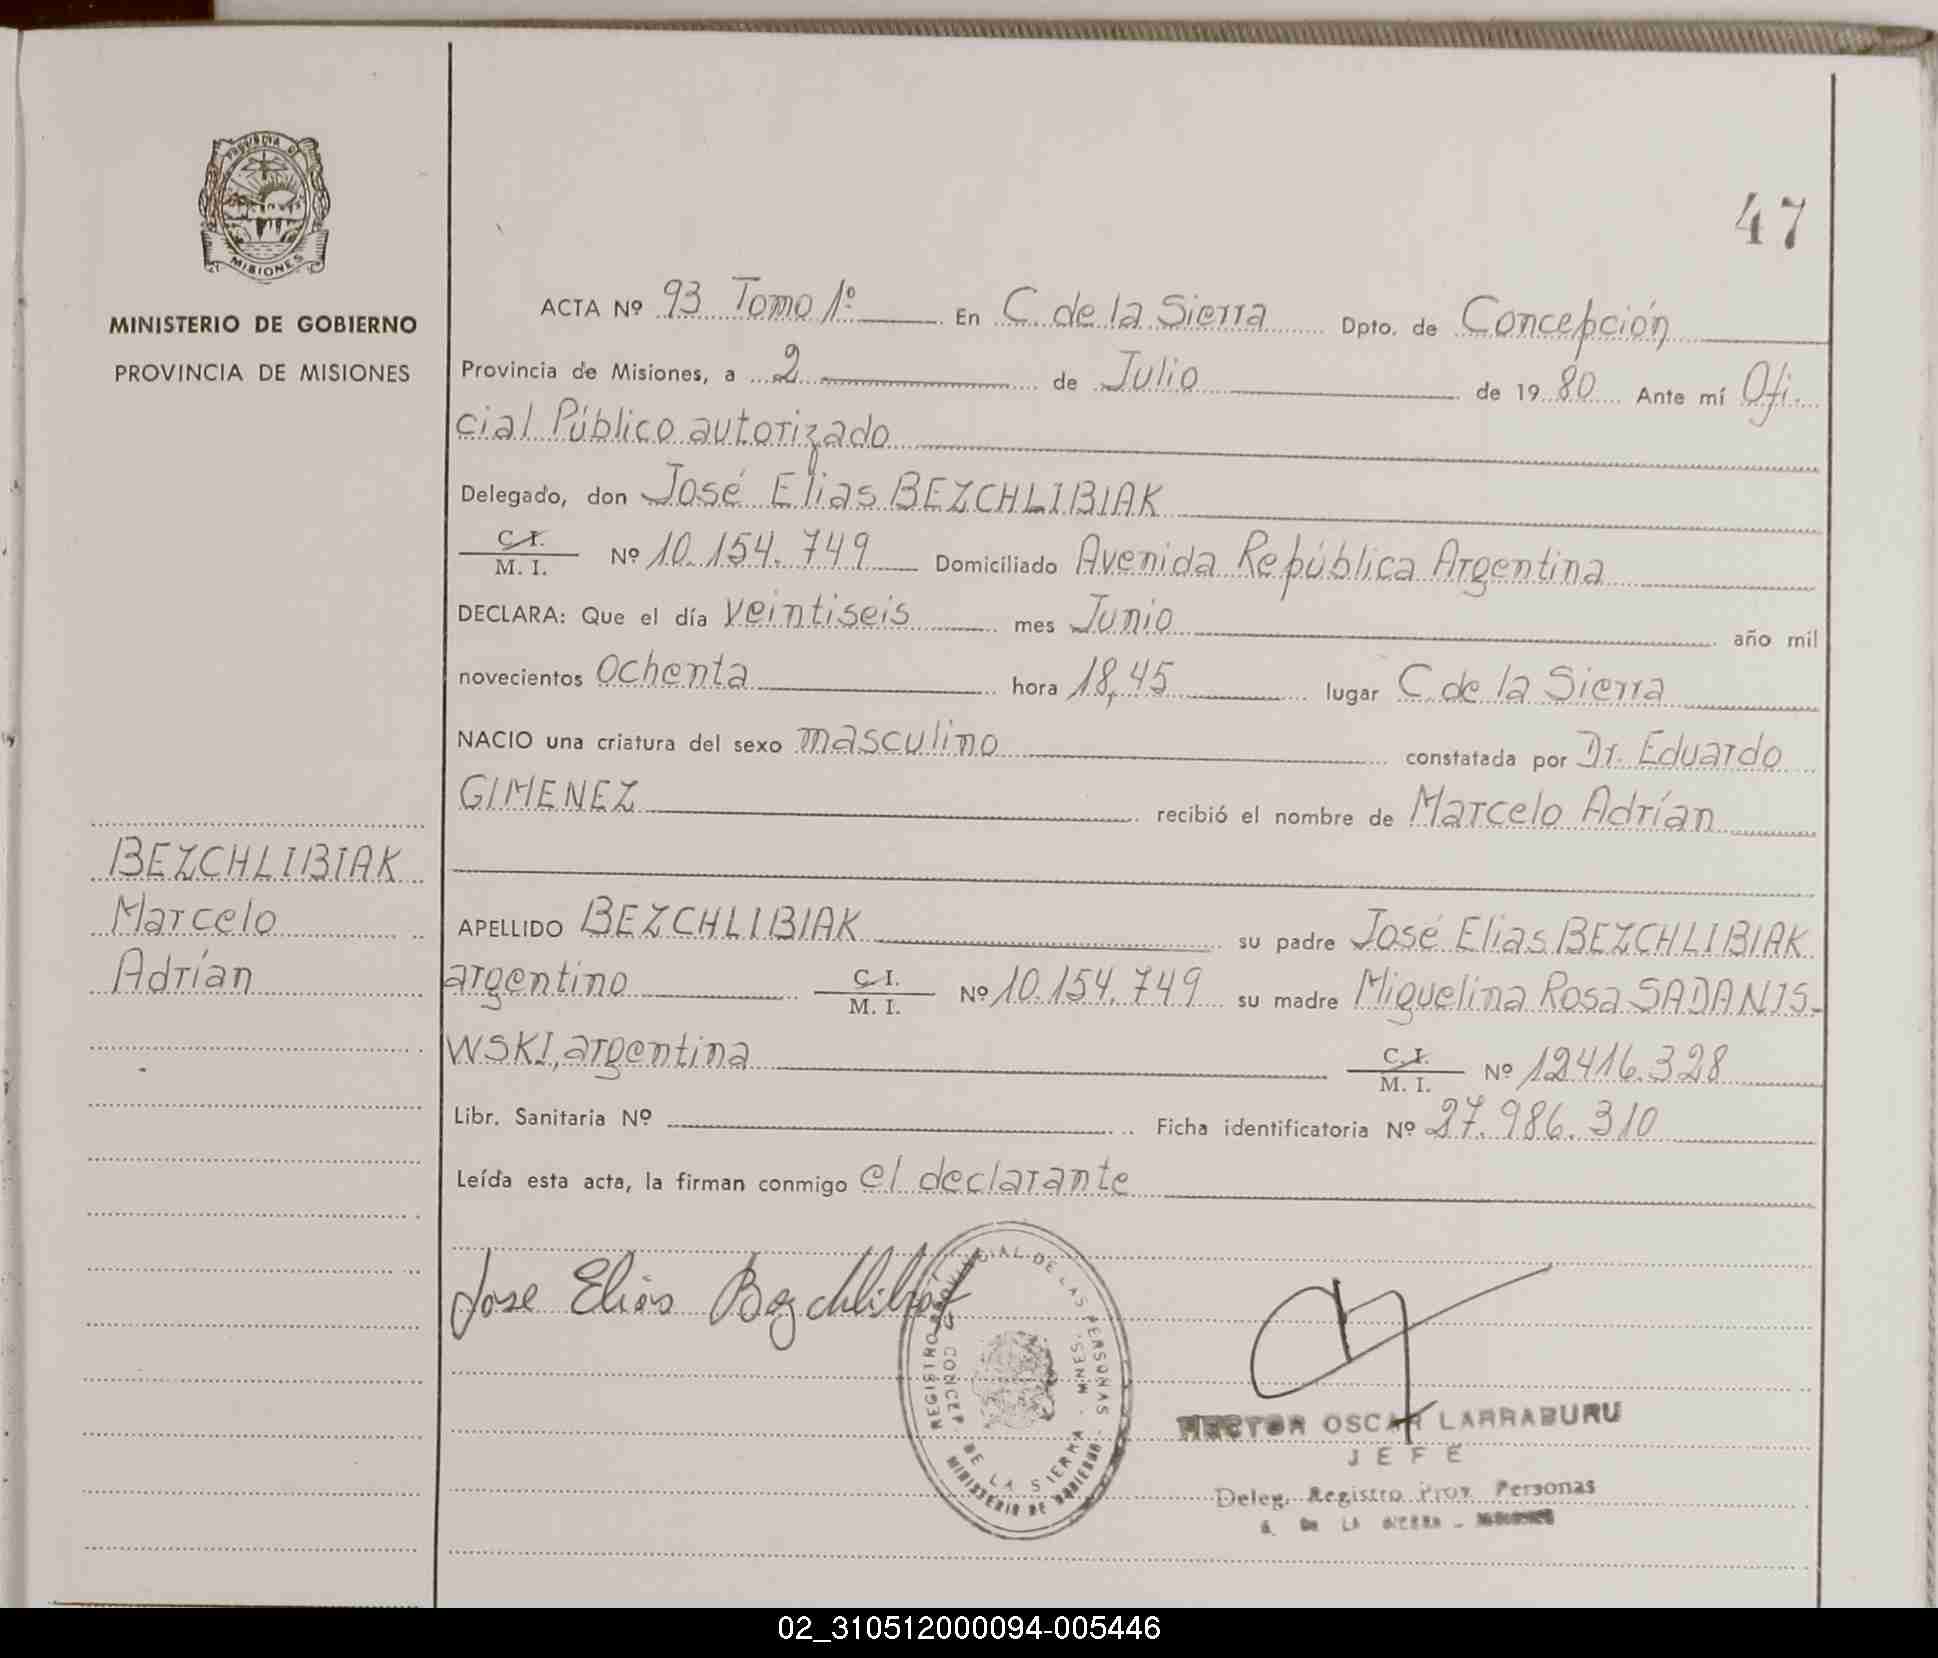 PROVINCIA DE
MISIONES
MINISTERIO DE GOBIERNO
PROVINCIA DE MISIONES
47
ACTA Nº 93 Tomo 1º En C. de la Sierra Dpto. de Concepción
Provincia de Misiones, a 2 de Julio de 19 80 Ante mí Ofi-
cial Público autorizado
Delegado, don José Elias BEZCHLIBIAK
C. I.
M. I. Nº 10.154.749 Domiciliado Avenida República Argentina
DECLARA: Que el día veintiseis mes Junio año mil
novecientos ochenta hora 18,45 lugar C. de la Sierra
NACIO una criatura del sexo masculino constatada por Dr. Eduardo
GIMENEZ recibió el nombre de Marcelo Adrían
BEZCHLIBIAK
Marcelo
Adrían
APELLIDO BEZCHLIBIAK su padre José Elias BEZCHLIBIAK
argentino C. I.
M. I. Nº 10.154.749 su madre Miguelina Rosa SADANIS-
WSKI, argentina C. I.
M. I. Nº 12416.328
Libr. Sanitaria Nº Ficha identificatoria Nº 27.986.310
Leída esta acta, la firman conmigo el declarante
Jose Elias Bezchlibiak
REGISTRO PROVINCIAL DE LAS PERSONAS
CONCEP. DE LA SIERRA - MNES.
MINISTERIO DE GOBIERNO
HECTOR OSCAR LARRABURU
JEFE
Deleg. Registro Prov. Personas
DE LA SIERRA - MISIONES
02_310512000094-005446